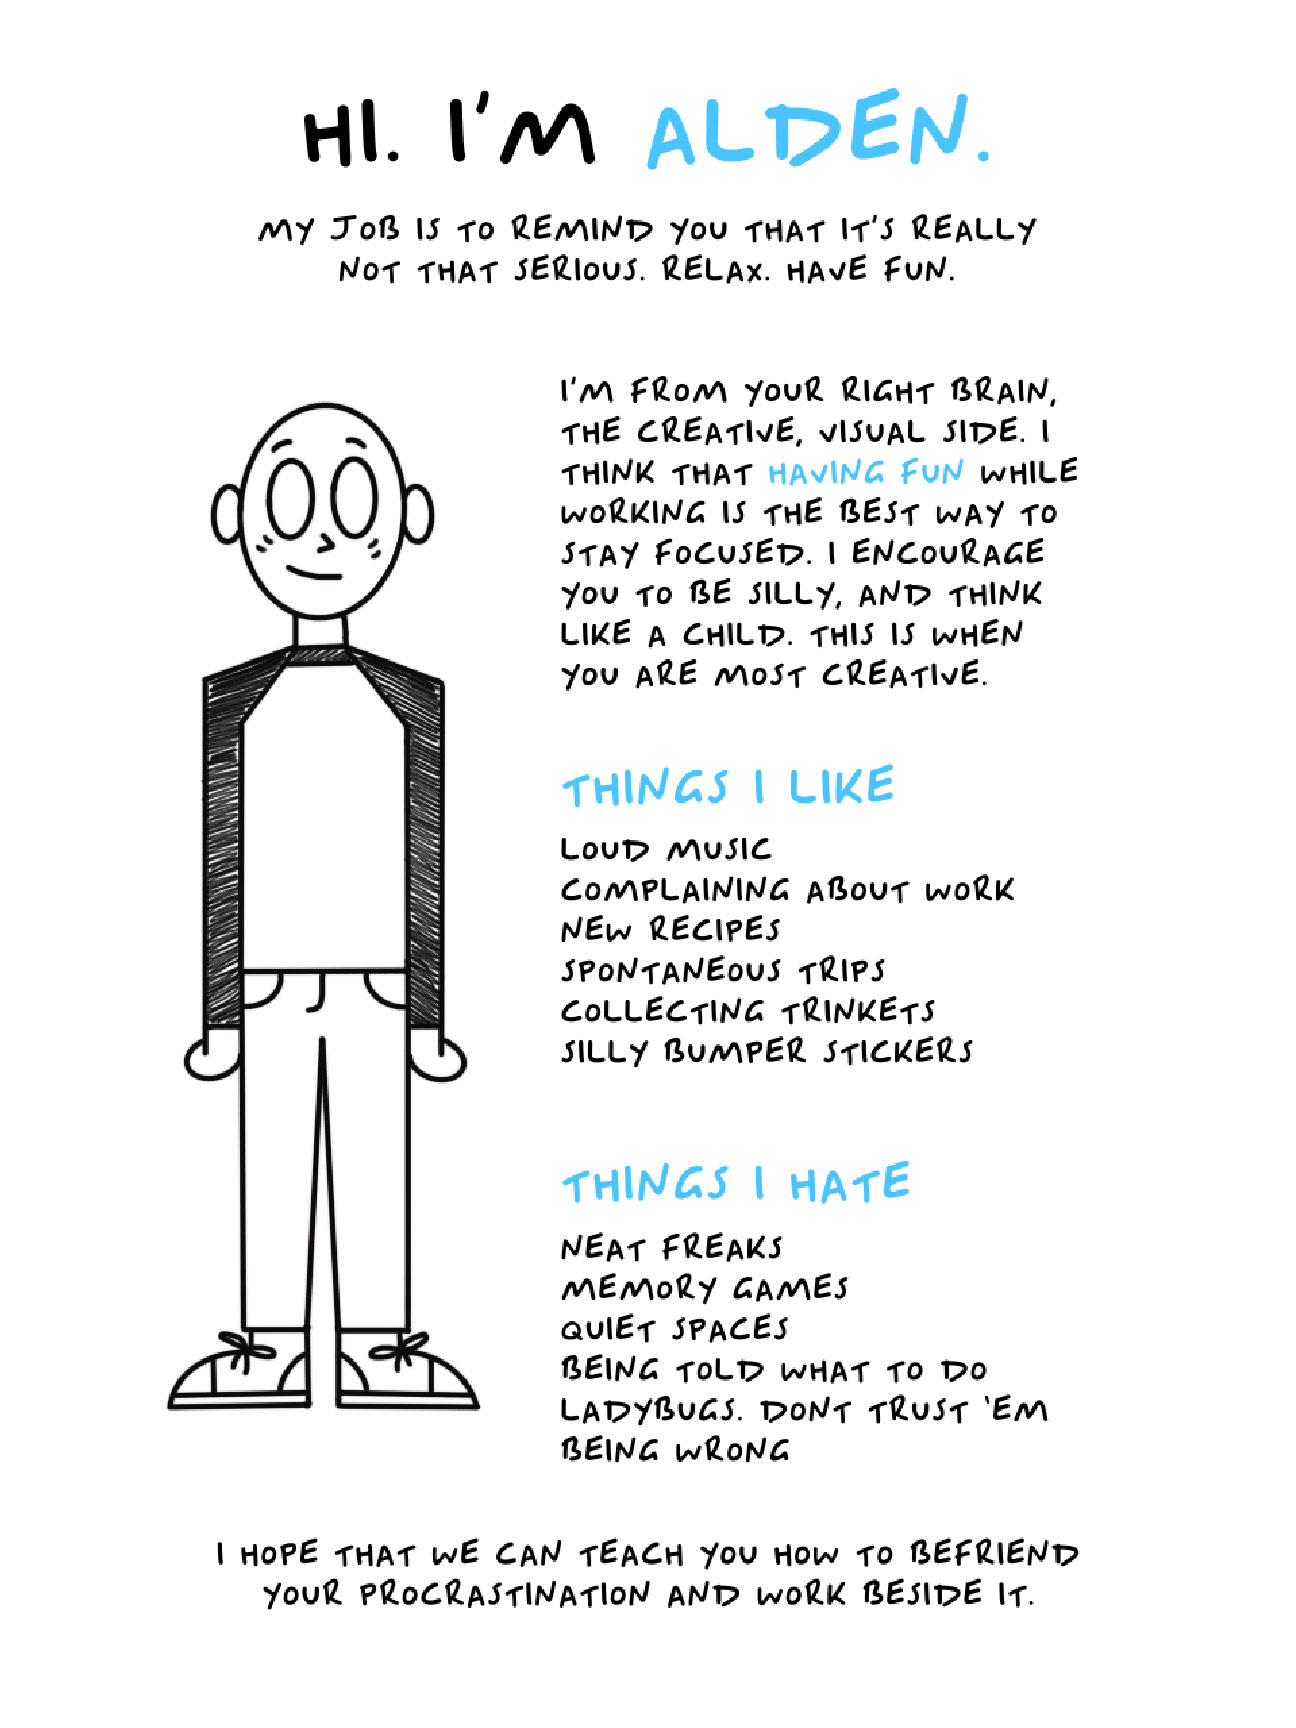 HI. I'M ALDEN.
MY JOB IS TO REMIND YOU THAT IT'S REALLY
NOT THAT SERIOUS. RELAX. HAVE FUN.
I'M FROM YOUR RIGHT BRAIN,
THE CREATIVE, VISUAL SIDE. I
THINK THAT HAVING FUN WHILE
WORKING IS THE BEST WAY TO
STAY FOCUSED. I ENCOURAGE
YOU TO BE SILLY, AND THINK
LIKE A CHILD. THIS IS WHEN
YOU ARE MOST CREATIVE.
THINGS I LIKE
LOUD MUSIC
COMPLAINING ABOUT WORK
NEW RECIPES
SPONTANEOUS TRIPS
COLLECTING TRINKETS
SILLY BUMPER STICKERS
THINGS I HATE
NEAT FREAKS
MEMORY GAMES
QUIET SPACES
BEING TOLD WHAT TO DO
LADYBUGS. DONT TRUST 'EM
BEING WRONG
I HOPE THAT WE CAN TEACH YOU HOW TO BEFRIEND
YOUR PROCRASTINATION AND WORK BESIDE IT.